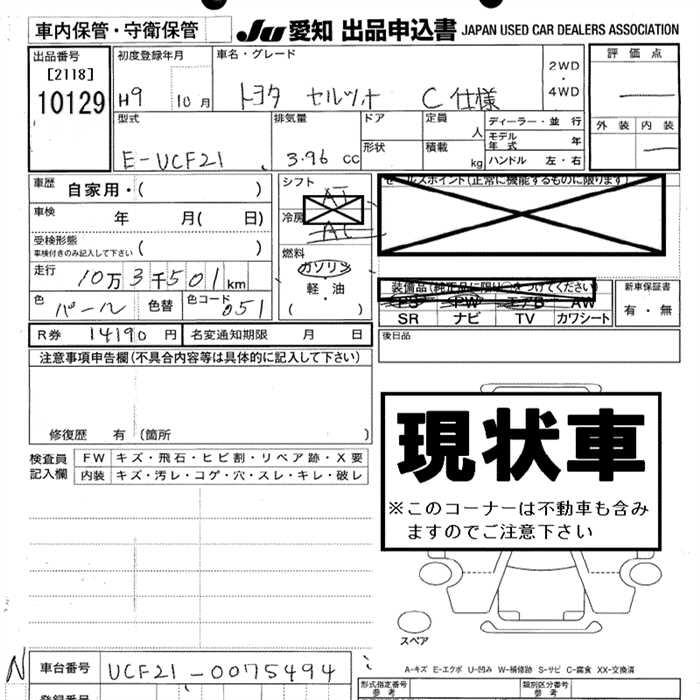 車内保管・守衛保管
JU 愛知 出品申込書 JAPAN USED CAR DEALERS ASSOCIATION
出品番号
[2118]
10129
初度登録年月
H9 10月
車名・グレード
トヨタ セルシオ C仕様
2WD
・
4WD
評価点
外装 内装
型式
E-UCF21
排気量
3.96 cc
ドア
形状
定員
人
積載
kg
ディーラー・並 行
モデル年式 年
ハンドル 左・右
車歴 自家用・( )
車検 年 月( 日)
受検形態
車検付きのみ記入して下さい ( )
走行 10万3千501km
色 パール 色替 色コード 051
シフト AT
冷房 AC
燃料
ガソリン
軽・油
( )
セールスポイント(正常に機能するものに限ります)
装備品(純正品に限り○をつけてください)
PS PW エアB AW
SR ナビ TV カワシート
新車保証書
有・無
R券 14190円 名変通知期限 月 日
後日品
注意事項申告欄(不具合内容等は具体的に記入して下さい)
修復歴 有 (箇所 )
検査員
記入欄
FW キズ・飛石・ヒビ割・リペア跡・X要
内装 キズ・汚レ・コゲ・穴・スレ・キレ・破レ
現状車
※このコーナーは不動車も含み
ますのでご注意下さい
スペア
A-キズ E-エクボ U-凹み W-補修跡 S-サビ C-腐食 XX-交換済
N 車台番号 UCF21-0075494
登録番号
型式指定番号
参考
類別区分番号
参考